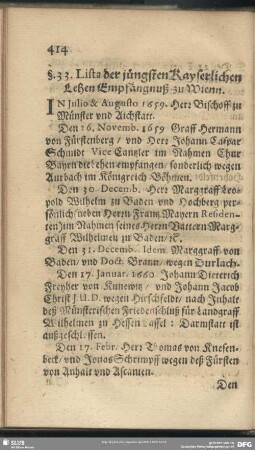 414
§.33. Lista der jüngsten Kayserlichen
Lehen Empfängnuß zu Wienn.
IN Julio & Augusto 1659. Herr Bischoff zu
Münster und Aichstatt.
Den 16. Novemb. 1659 Graff Hermann
von Fürstenberg / vnd Herr Johann Caspar
Schmidt Vice Cantzler im Nahmen Chur
Bayrn die Lehen empfangen / sonderlich wegen
Aurbach im Königreich Böhmen.
Den 30. Decemb. Herr Marggraff Leo-
pold Wilhelm zu Baden und Hochberg per-
sönlich / neben Herrn Frantz Mayern Residen-
ten / im Nahmen seines Herrn Vattern Marg-
graff Wilhelmen zu Baden / ꝛc.
Den 31. Decemb. Idem Marggraff von
Baden / vnd Doct. Brann / wegen Durlach.
Den 17. Januar. 1660 Johann Dieterich
Freyherr von Kunewitz / vnd Johann Jacob
Christ J.U.D. wegen Hirschfeldt / nach Inhalt
deß Münsterischen Friedenschluß für Landgraff
Wilhelmen zu Hessen Cassel : Darmstatt ist
außgeschlossen.
Den 17. Febr. Herr Thomas von Knesen-
beck / vnd Jonas Schrimpff wegen deß Fürsten
von Anhalt vnd Ascanien.
Den